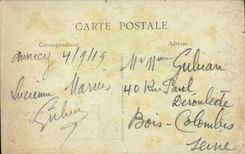 CARTE POSTALE
Correspondance
Adresse
Annecy 4/9/19
Mr Mme Guluan
Lucienne Marius
40 Rue Paul
Deroulède
Bois-Colombes
Seine